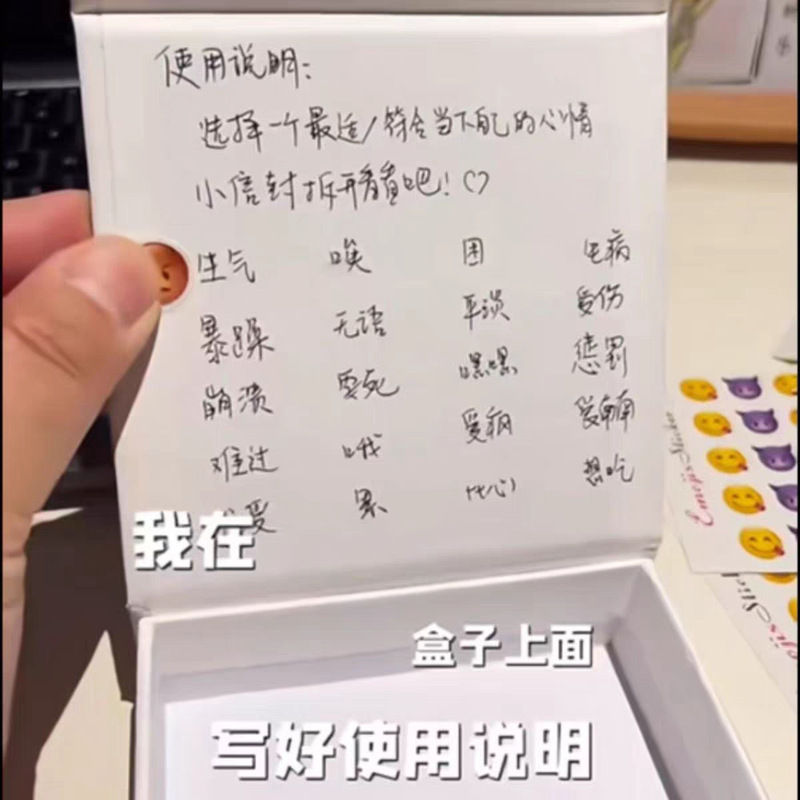 使用说明:
选择一个最适/符合当下自己的心情
小信封拆开看看吧!♡
生气 唉 困 生病
暴躁 无语 平淡 受伤
崩溃 要死 嘿嘿 惩罚
难过 哦 爱
累 想吃
我在
盒子上面
写好使用说明
Emojis Sticker